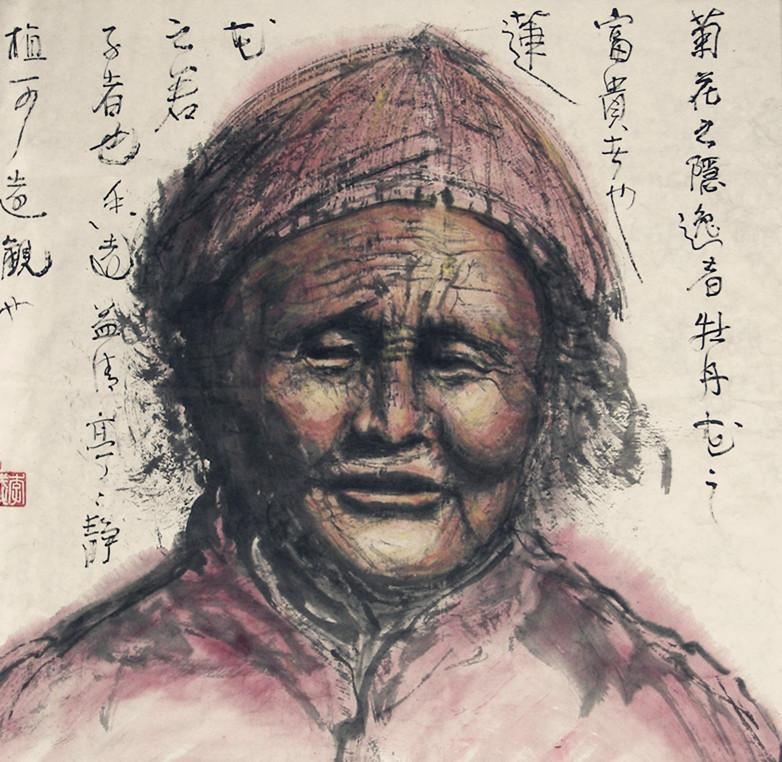 菊花之隱逸者牡丹花之
富貴者也
蓮
花
之君
子者也香遠益清亭〻靜
植可遠觀